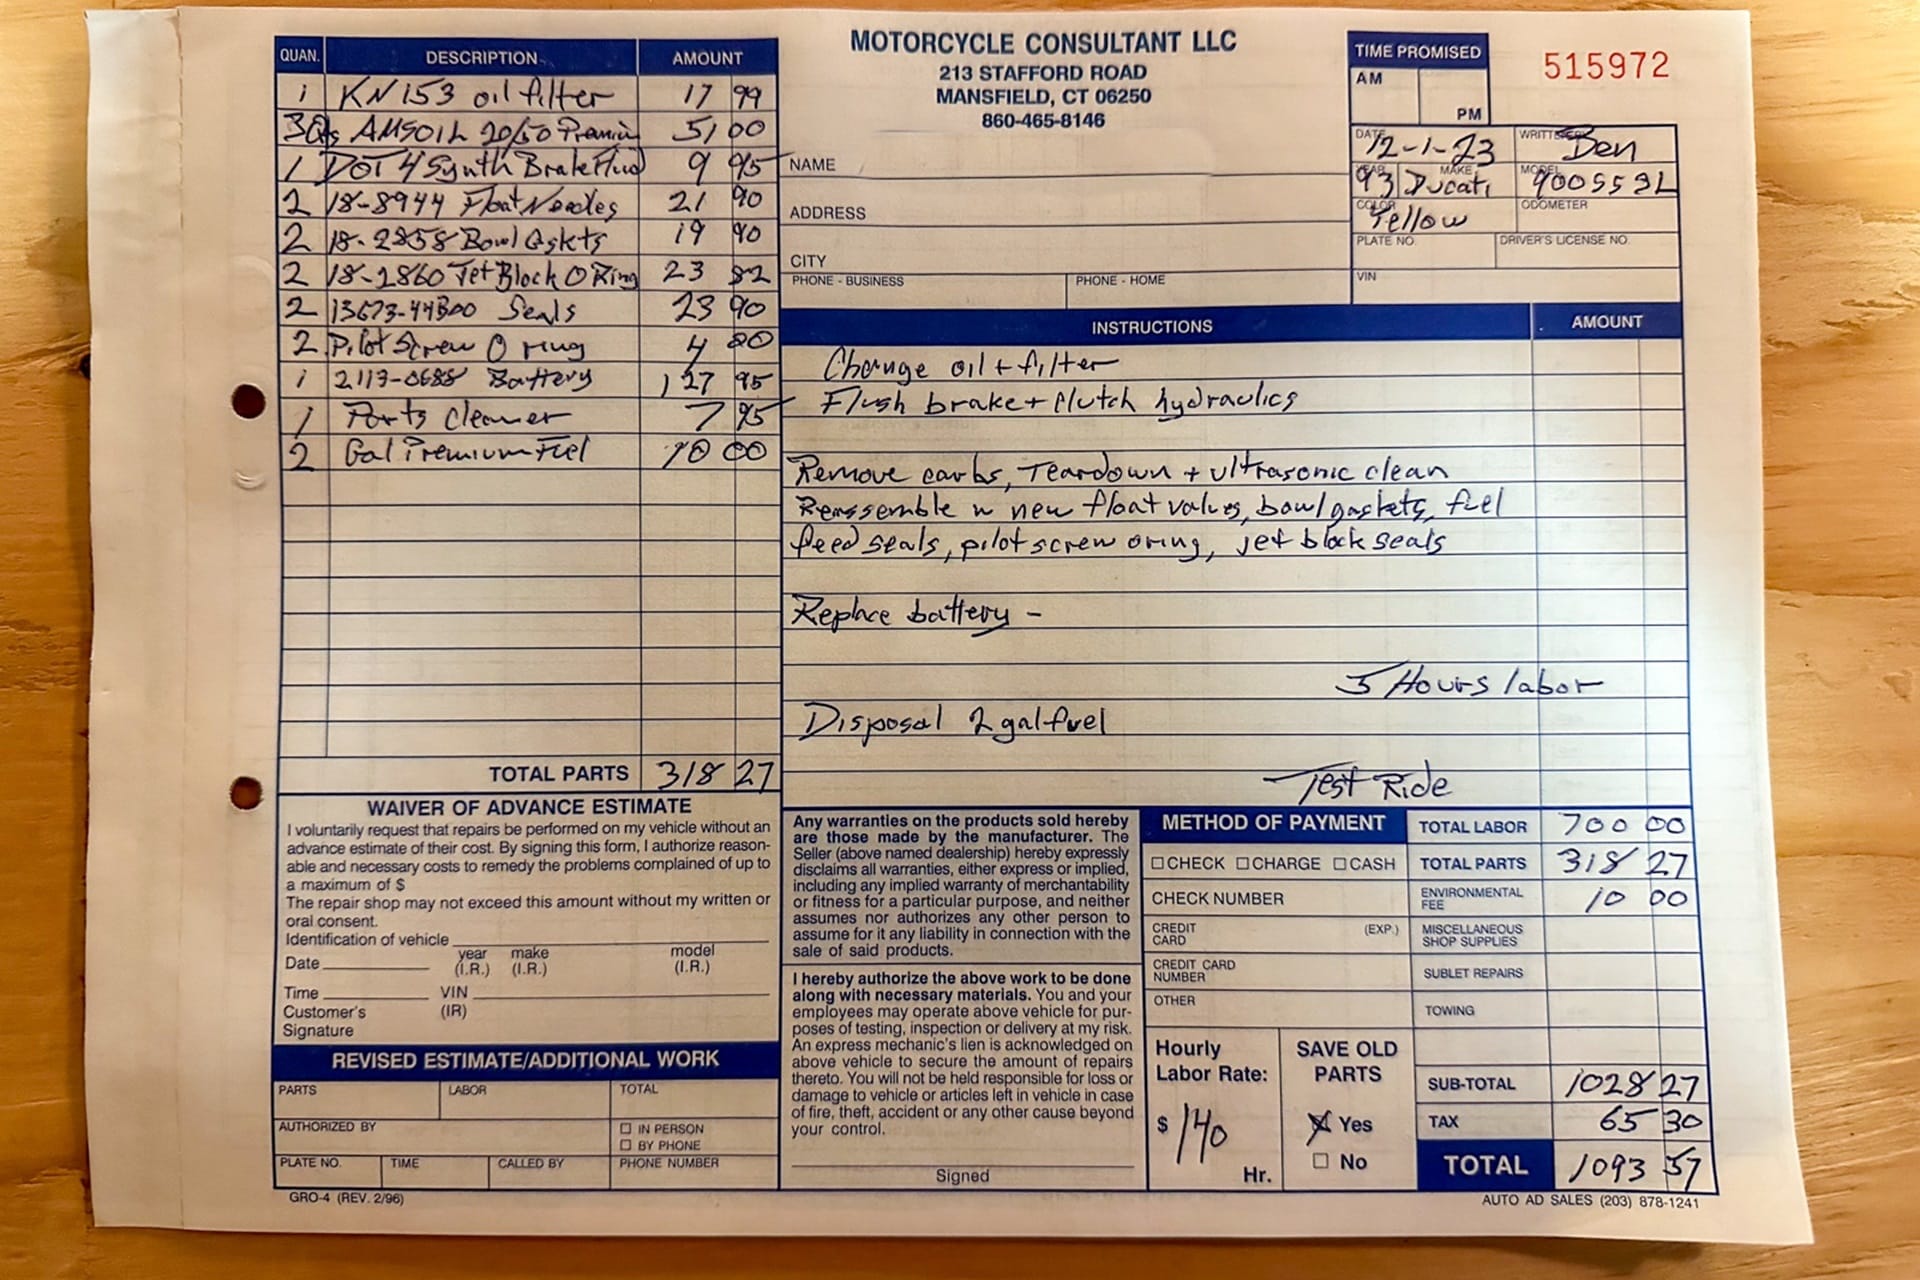 QUAN. DESCRIPTION AMOUNT
1 KN153 oil filter 17 99
3Qts AMSOIL 20/50 Premium 51 00
1 DOT 4 Synth Brake Fluid 9 95
2 18-8944 Float Needles 21 90
2 18-2858 Bowl Gskts 19 90
2 18-2860 Jet Block O Ring 23 82
2 13673-44B00 Seals 23 90
2 Pilot Screw O ring 4 00
1 2113-0688 Battery 127 95
1 Parts Cleaner 7 95
2 Gal Premium Fuel 10 00
TOTAL PARTS 318 27
WAIVER OF ADVANCE ESTIMATE
I voluntarily request that repairs be performed on my vehicle without an
advance estimate of their cost. By signing this form, I authorize reason-
able and necessary costs to remedy the problems complained of up to
a maximum of $
The repair shop may not exceed this amount without my written or
oral consent.
Identification of vehicle
year make model
Date (I.R.) (I.R.) (I.R.)
Time VIN
Customer's (IR)
Signature
REVISED ESTIMATE/ADDITIONAL WORK
PARTS LABOR TOTAL
AUTHORIZED BY
☐ IN PERSON
☐ BY PHONE
PLATE NO. TIME CALLED BY PHONE NUMBER
GRO-4 (REV. 2/96)
MOTORCYCLE CONSULTANT LLC
213 STAFFORD ROAD
MANSFIELD, CT 06250
860-465-8146
NAME
ADDRESS
CITY
PHONE - BUSINESS PHONE - HOME
TIME PROMISED
AM
PM
515972
DATE 12-1-23 Ben
YEAR 93 MAKE Ducati MODEL 900SS SL
COLOR Yellow ODOMETER
PLATE NO. DRIVER'S LICENSE NO.
VIN
INSTRUCTIONS AMOUNT
Change oil + filter
Flush brake + Clutch hydraulics
Remove carbs, Teardown + ultrasonic clean
Reassemble w new float valves, bowl gaskets, fuel
feed seals, pilot screw oring, jet block seals
Replace battery -
5 Hours labor
Disposal 2 gal fuel
Test Ride
Any warranties on the products sold hereby
are those made by the manufacturer. The
Seller (above named dealership) hereby expressly
disclaims all warranties, either express or implied,
including any implied warranty of merchantability
or fitness for a particular purpose, and neither
assumes nor authorizes any other person to
assume for it any liability in connection with the
sale of said products.
I hereby authorize the above work to be done
along with necessary materials. You and your
employees may operate above vehicle for pur-
poses of testing, inspection or delivery at my risk.
An express mechanic's lien is acknowledged on
above vehicle to secure the amount of repairs
thereto. You will not be held responsible for loss or
damage to vehicle or articles left in vehicle in case
of fire, theft, accident or any other cause beyond
your control.
Signed
METHOD OF PAYMENT
☐ CHECK ☐ CHARGE ☐ CASH
CHECK NUMBER
CREDIT CARD (EXP.)
CREDIT CARD NUMBER
OTHER
Hourly
Labor Rate:
$ 140
Hr.
SAVE OLD
PARTS
☒ Yes
☐ No
TOTAL LABOR 700 00
TOTAL PARTS 318 27
ENVIRONMENTAL FEE 10 00
MISCELLANEOUS SHOP SUPPLIES
SUBLET REPAIRS
TOWING
SUB-TOTAL 1028 27
TAX 65 30
TOTAL 1093 57
AUTO AD SALES (203) 878-1241